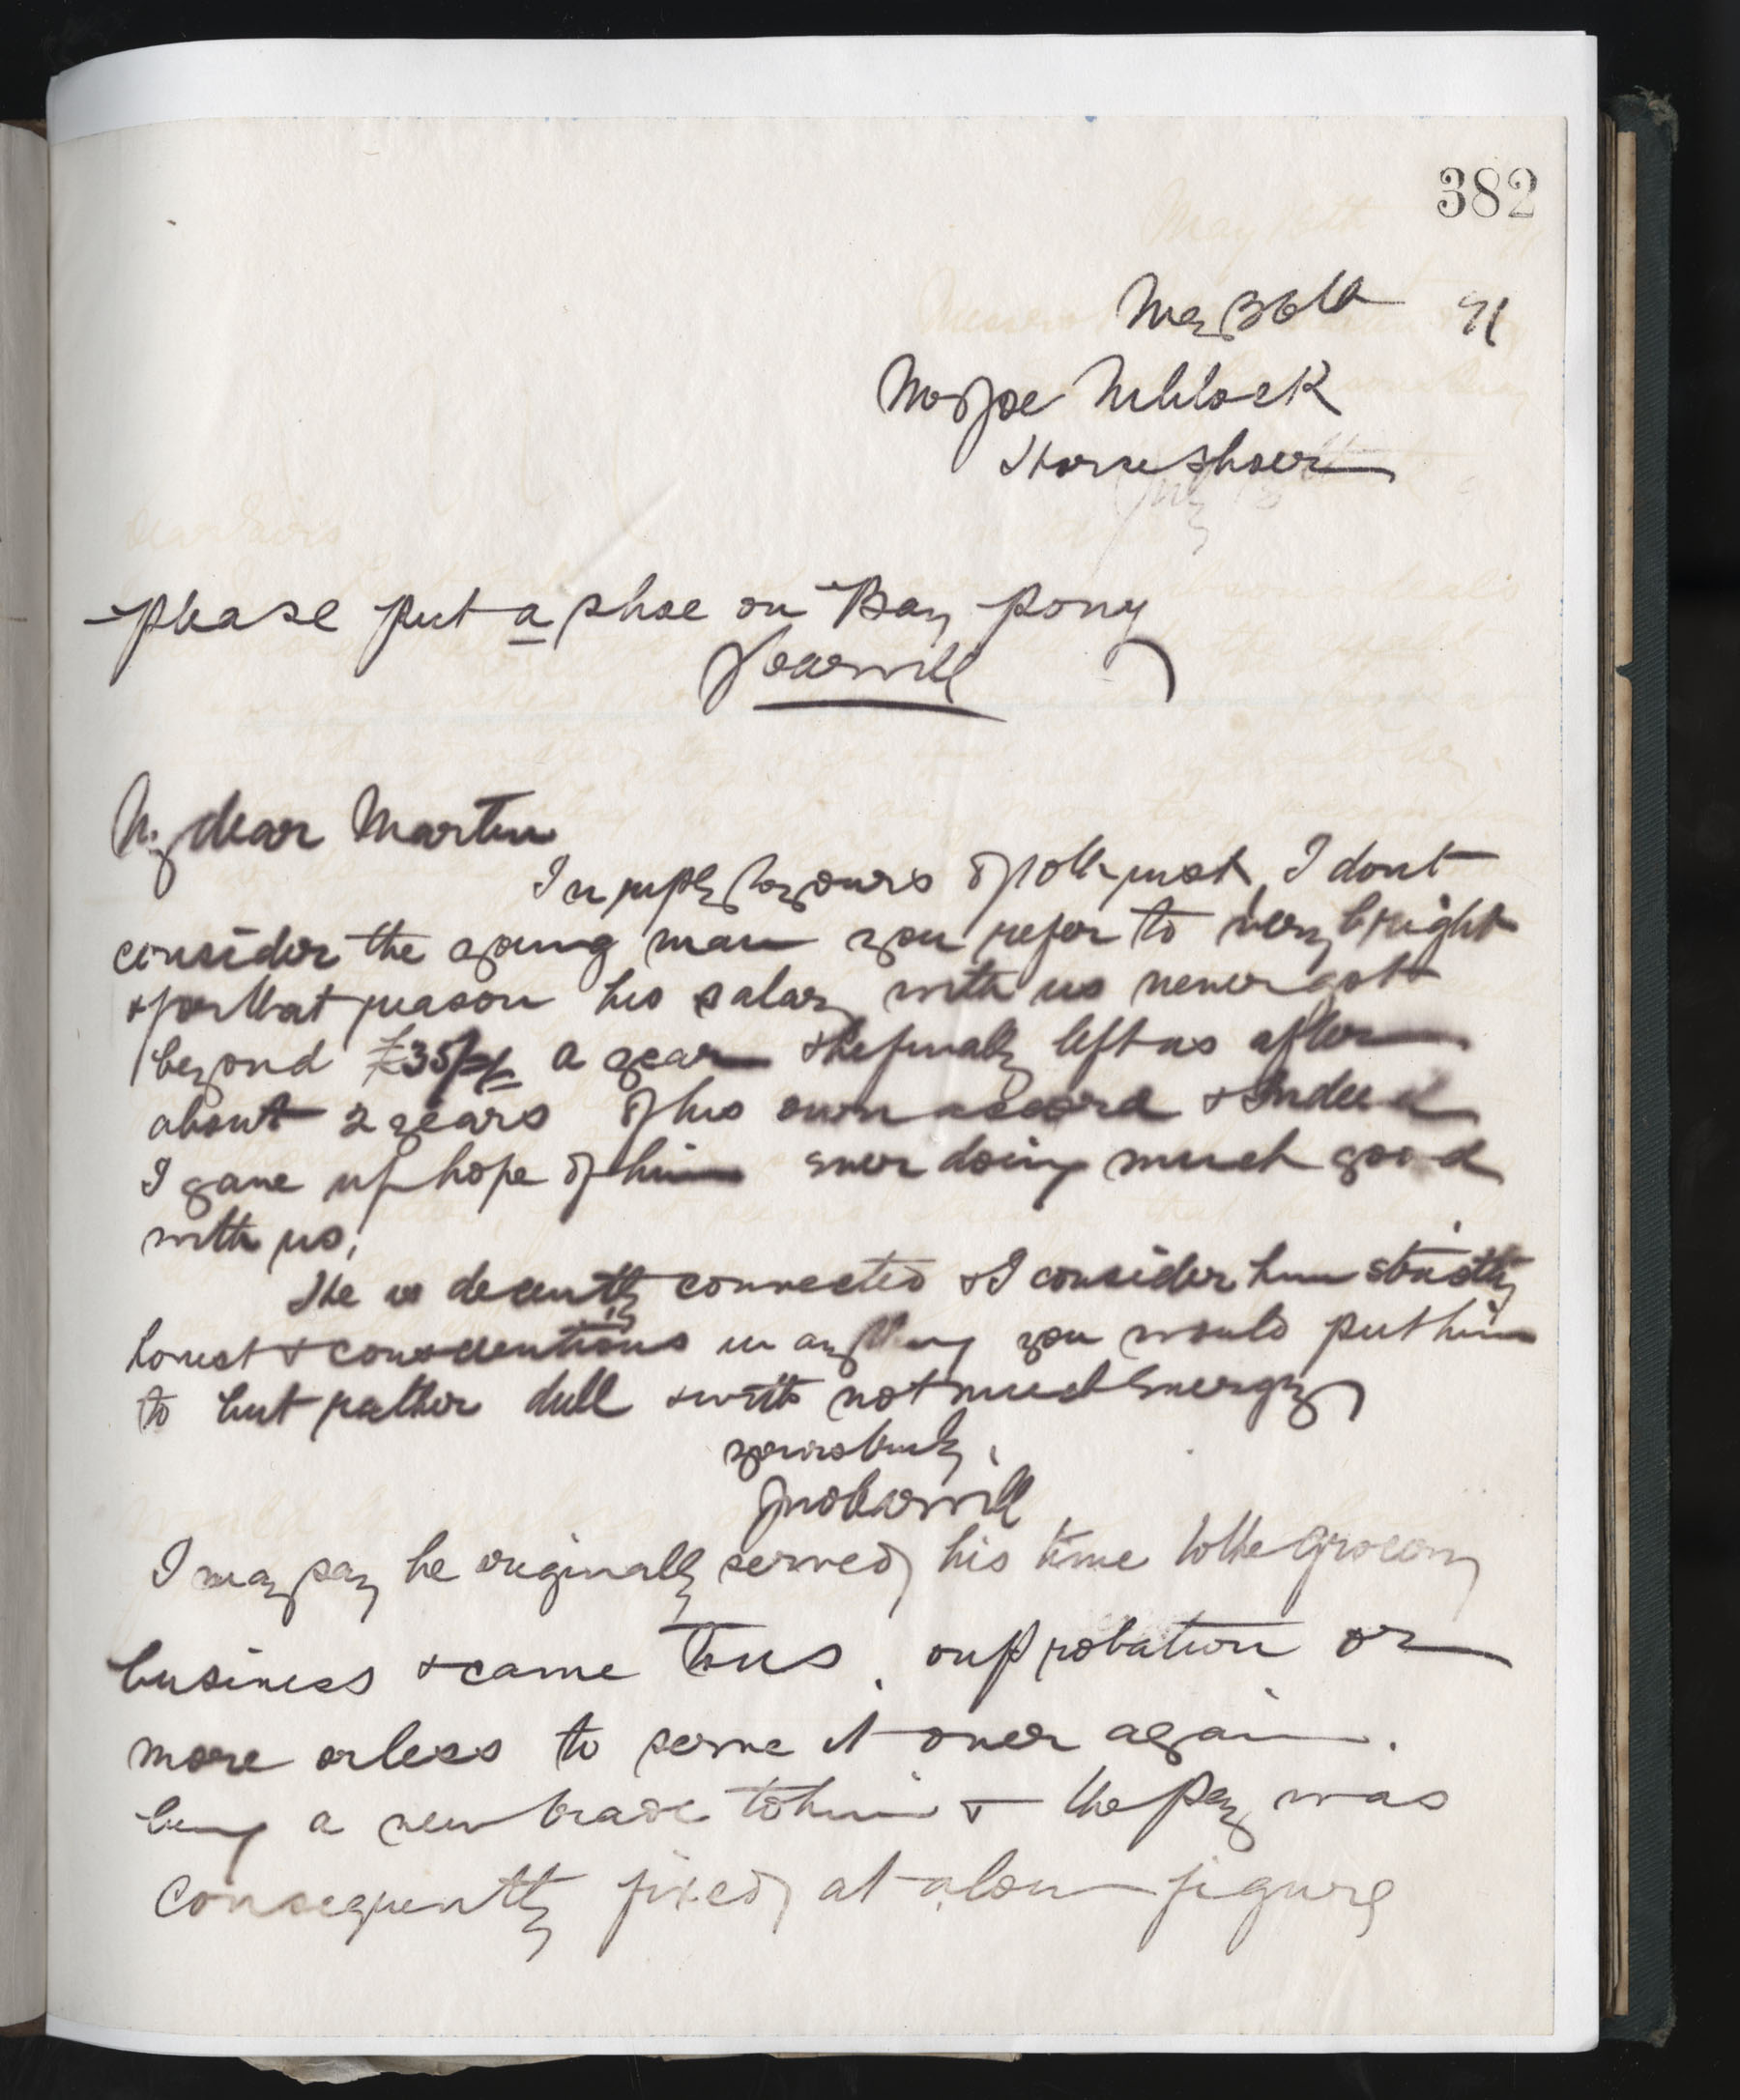 382
May 26th 91
Mr Joe Niblock
Horse Shoer
Please put a shoe on Bay pony
My dear Martin
In reply to yours of 10th inst I dont
consider the young man you refer to very bright
& for that reason his salary with us never got
beyond £35 a year & he finally left us after
about 2 years of his own accord & indeed
I gave up hope of him ever doing much good
with us.
He is decently connected & I consider him strictly
honest & conscientious in anything you would put him
to but rather dull & with not much energy
yours truly
I may say he originally served his time to the Grocery
business & came to us . on probation or
more or less to serve it over again .
being a new trade to him & the pay was
consequently fixed at a low figure